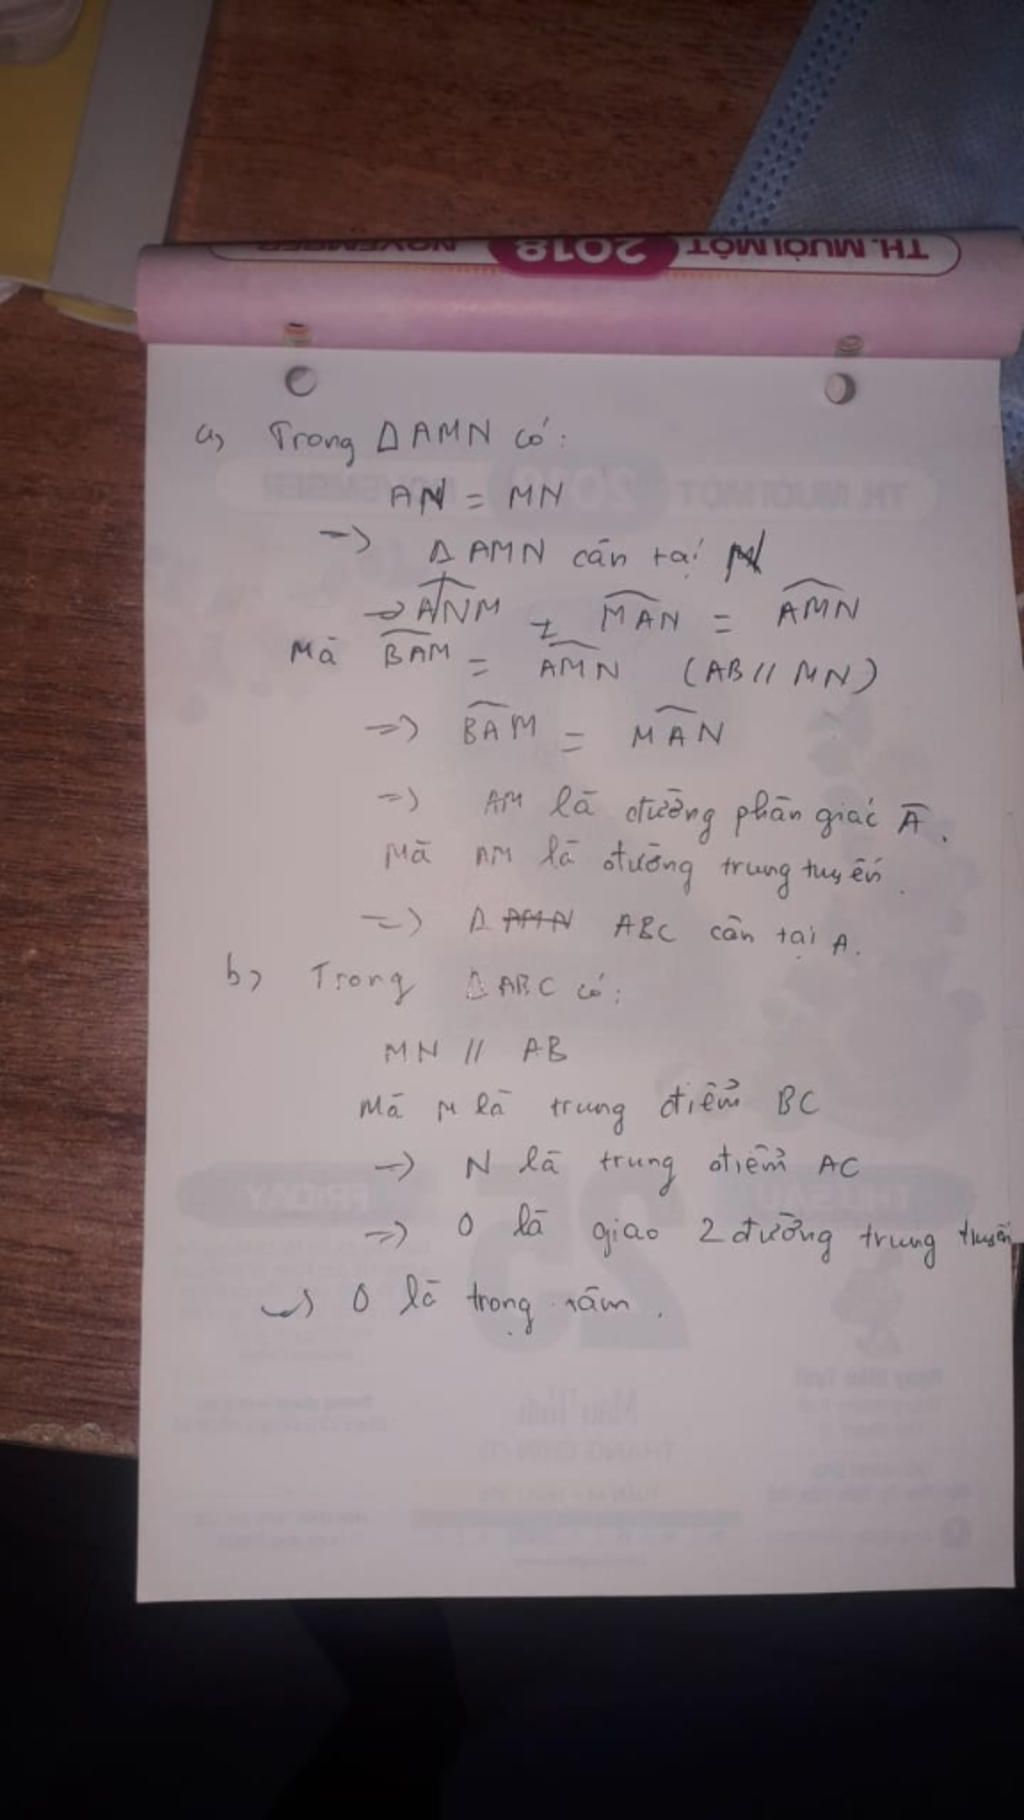 TH. MƯỜI MỘT 2018 NOVEMBER
a, Trong Δ AMN có:
AN = MN
=> Δ AMN cân tại N
=> MAN = AMN
Mà BAM = AMN (AB // MN)
=> BAM = MAN
=> AM là đường phân giác A.
Mà AM là đường trung tuyến.
=> Δ ABC cân tại A.
b, Trong Δ ABC có:
MN // AB
Mà M là trung điểm BC
=> N là trung điểm AC
=> O là giao 2 đường trung tuyến
=> O là trọng tâm.